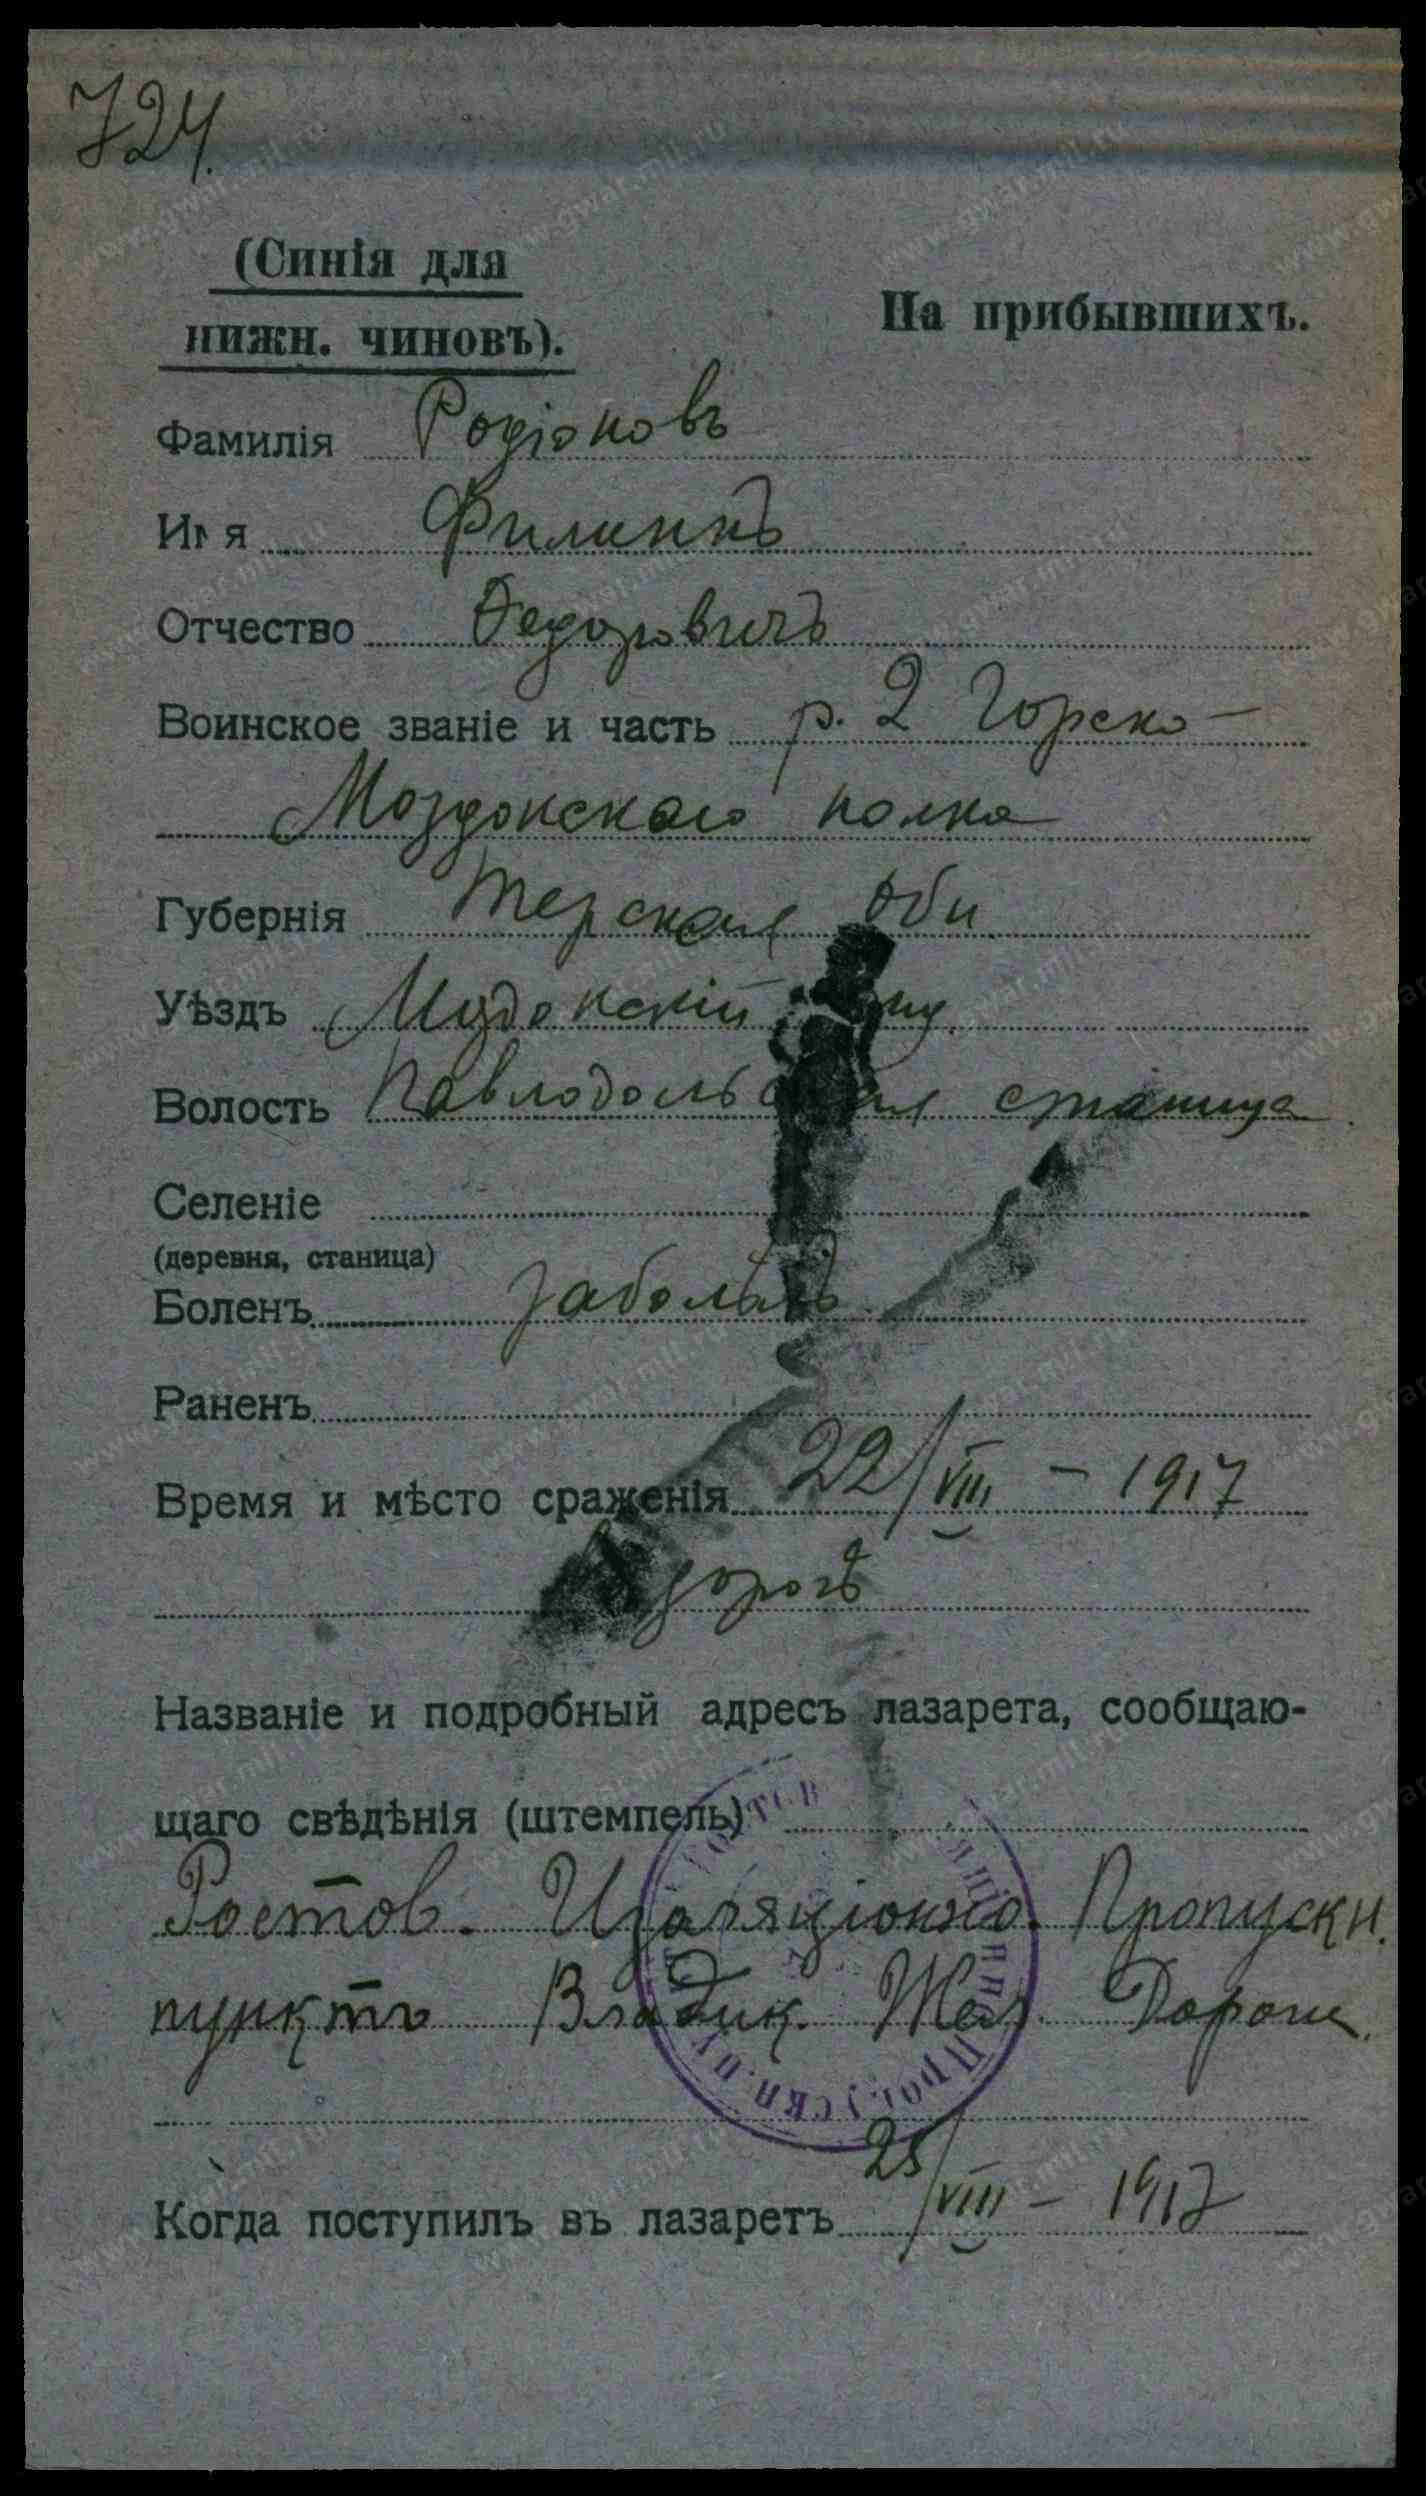 724.
(Синія для
нижн. чиновъ).
На прибывшихъ.
Фамилія Родіоновъ
Имя Филиппъ
Отчество Федоровичъ
Воинское званіе и часть р. 2 Горско-
Моздокскаго полка
Губернія Терская обл
Уѣздъ Моздокскій
Волость Павлодольская станица
Селеніе
(деревня, станица)
Боленъ заболѣлъ
Раненъ
Время и мѣсто сраженія 22/VIII - 1917
дорогѣ
Названіе и подробный адресъ лазарета, сообщаю-
щаго свѣдѣнія (штемпель)
Ростов. Изоляціонно. Пропускн.
пунктъ Владик. Жел. Дороги.
Когда поступилъ въ лазаретъ 25/VIII - 1917